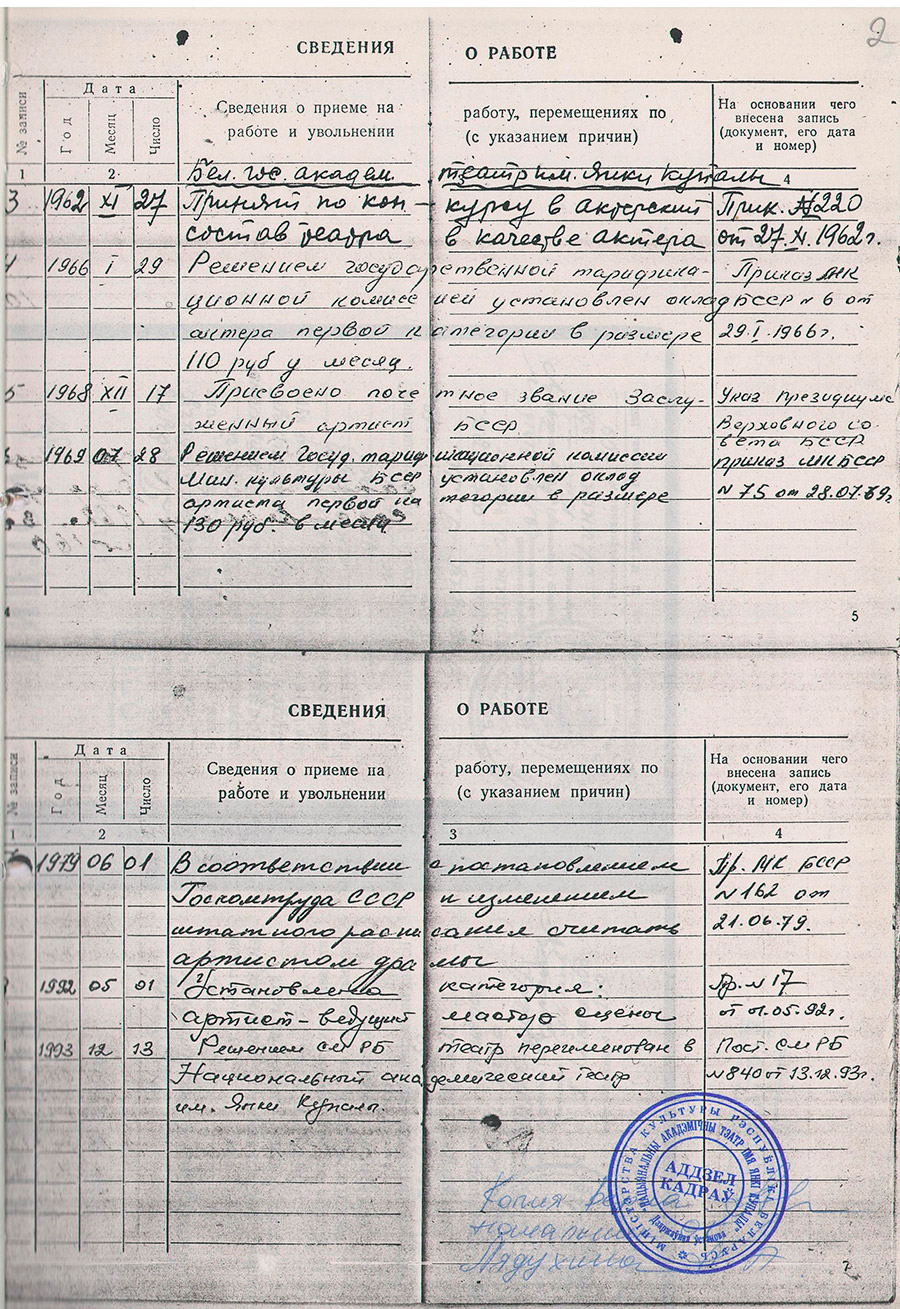 2
СВЕДЕНИЯ О РАБОТЕ
№ записи
Дата
Год
Месяц
Число
Сведения о приеме на работу, перемещениях по
работе и увольнении (с указанием причин)
На основании чего
внесена запись
(документ, его дата
и номер)
1 2 4
Бел. гос. академ. театр им. Янки Купалы
3 1962 XI 27 Принят по конкурсу в актерский Прик. №220
состав театра в качестве актера от 27.XI.1962г.
4 1966 I 29 Решением государственной тарифика- Приказ МК
ционной комиссией установлен оклад БССР № 6 от
актера первой категории в размере 29.I.1966г.
110 руб у месяц.
5 1968 XII 17 Присвоено почетное звание Заслу- Указ президиума
женный артист БССР Верховного со-
вета БССР
1969 07 28 Решением госуд. тарификационной комиссии приказ МК БССР
Мин. культуры БССР установлен оклад
артиста первой категории в размере № 75 от 28.07.69г
130 руб. в месяц
5
СВЕДЕНИЯ О РАБОТЕ
№ записи
Дата
Год
Месяц
Число
Сведения о приеме на работу, перемещениях по
работе и увольнении (с указанием причин)
На основании чего
внесена запись
(документ, его дата
и номер)
1 2 3 4
1979 06 01 В соответствии с постановлением Пр. МК БССР
Госкомтруда СССР и изменением № 162 от
штатного расписания считать 21.06.79.
артистом драмы
1992 05 01 Установлена категория: Пр. № 17
артист-ведущий мастер сцены от 01.05.92г.
1993 12 13 Решением СМ РБ театр переименован в Пост. СМ РБ
Национальный академический театр №840 от 13.12.93г.
им. Янки Купалы.
МІНІСТЭРСТВА КУЛЬТУРЫ РЭСПУБЛІКІ БЕЛАРУСЬ
НАЦЫЯНАЛЬНЫ АКАДЭМІЧНЫ ТЭАТР ІМЯ ЯНКІ КУПАЛЫ
Дзяржаўная ўстанова
АДДЗЕЛ
КАДРАЎ
Копия
7